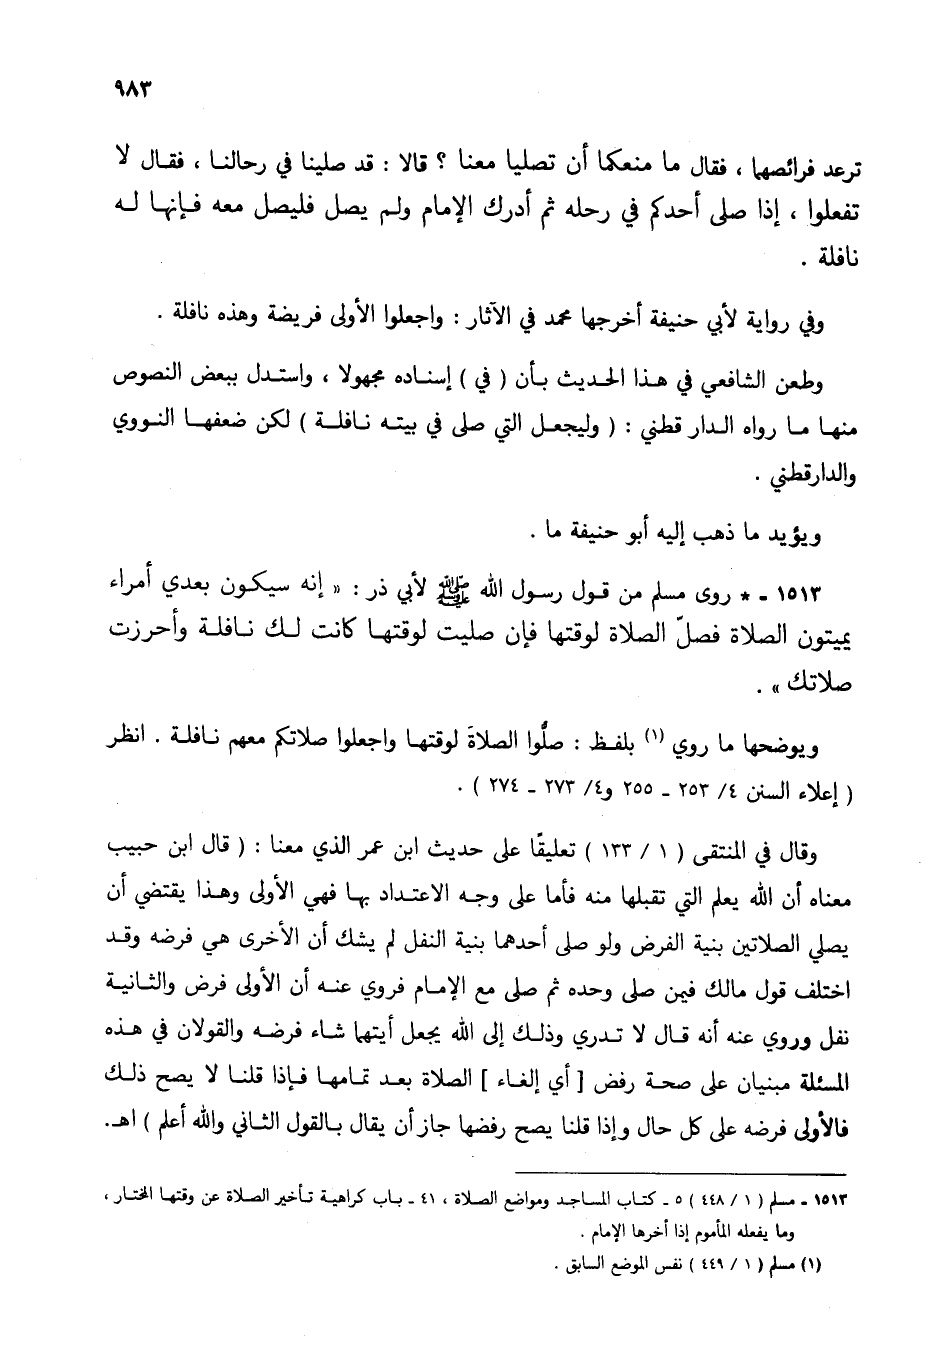 ٩٨٣
ترعد فرائصهما ، فقال ما منعكما أن تصليا معنا ؟ قالا : قد صلينا في رحالنا ، فقال لا
تفعلوا ، إذا صلى أحدكم في رحله ثم أدرك الإمام ولم يصل فليصل معه فإنها له
نافلة .
وفي رواية لأبي حنيفة أخرجها محمد في الآثار : واجعلوا الأولى فريضة وهذه نافلة .
وطعن الشافعي في هذا الحديث بأن ( في ) إسناده مجهولا ، واستدل ببعض النصوص
منها ما رواه الدار قطني : ( وليجعل التي صلى في بيته نافلة ) لكن ضعفها النووي
والدارقطني .
ويؤيد ما ذهب إليه أبو حنيفة ما .
١٥١٣ - * روى مسلم من قول رسول الله ﷺ لأبي ذر : « إنه سيكون بعدي أمراء
يميتون الصلاة فصلّ الصلاة لوقتها فإن صليت لوقتها كانت لك نافلة وأحرزت
صلاتك » .
ويوضحها ما روي (١) بلفظ : صلُّوا الصلاةَ لوقتها واجعلوا صلاتكم معهم نافلة . انظر
( إعلاء السنن ٤/ ٢٥٣ - ٢٥٥ و٤/ ٢٧٣ - ٢٧٤ ) .
وقال في المنتقى ( ١ / ١٣٣ ) تعليقًا على حديث ابن عمر الذي معنا : ( قال ابن حبيب
معناه أن الله يعلم التي تقبلها منه فأما على وجه الاعتداد بها فهي الأولى وهذا يقتضي أن
يصلي الصلاتين بنية الفرض ولو صلى أحدهما بنية النفل لم يشك أن الأخرى هي فرضه وقد
اختلف قول مالك فيمن صلى وحده ثم صلى مع الإمام فروي عنه أن الأولى فرض والثانية
نفل وروي عنه أنه قال لا تدري وذلك إلى الله يجعل أيتها شاء فرضه والقولان في هذه
المسئلة مبنيان على صحة رفض [ أي إلغاء ] الصلاة بعد تمامها فإذا قلنا لا يصح ذلك
فالأولى فرضه على كل حال وإذا قلنا يصح رفضها جاز أن يقال بالقول الثاني والله أعلم ) اهـ.
١٥١٣ - مسلم ( ١ / ٤٤٨ ) ٥ - كتاب المساجد ومواضع الصلاة ، ٤١ - باب كراهية تأخير الصلاة عن وقتها المختار ،
وما يفعله المأموم إذا أخرها الإمام .
(١) مسلم ( ١ / ٤٤٩ ) نفس الموضع السابق .